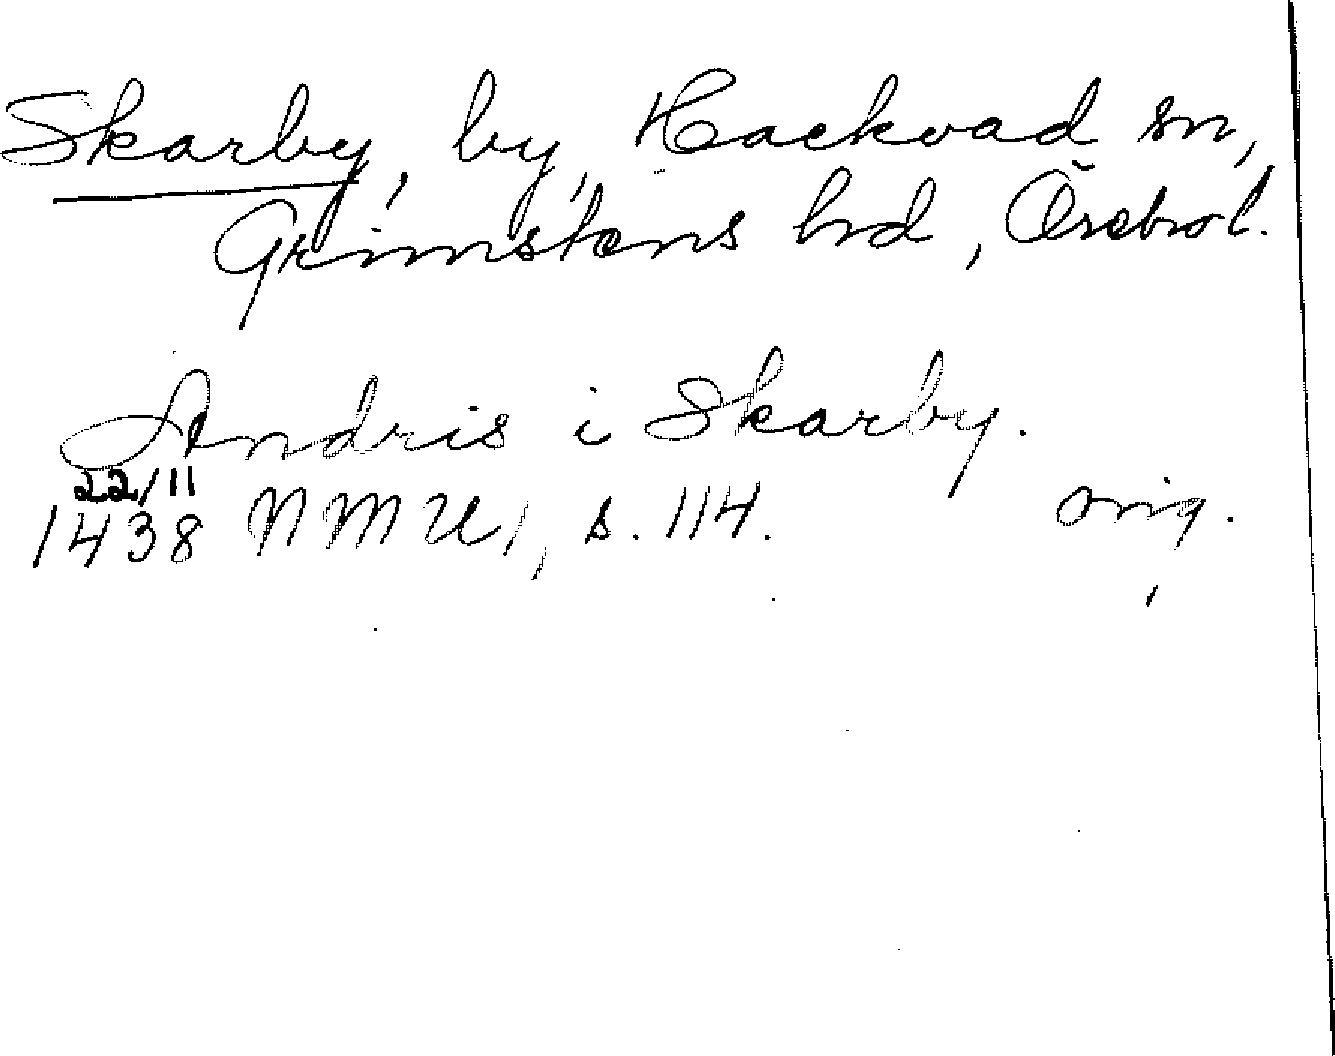 Skarby, by, Hackvad sn,
Grimstens hd, Örebro l.
Andris i Skarby.
22/11
1438 NMU 1, s. 114. orig.